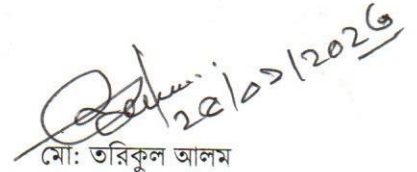 ২৫/০১/২০২৬
মো: তরিকুল আলম